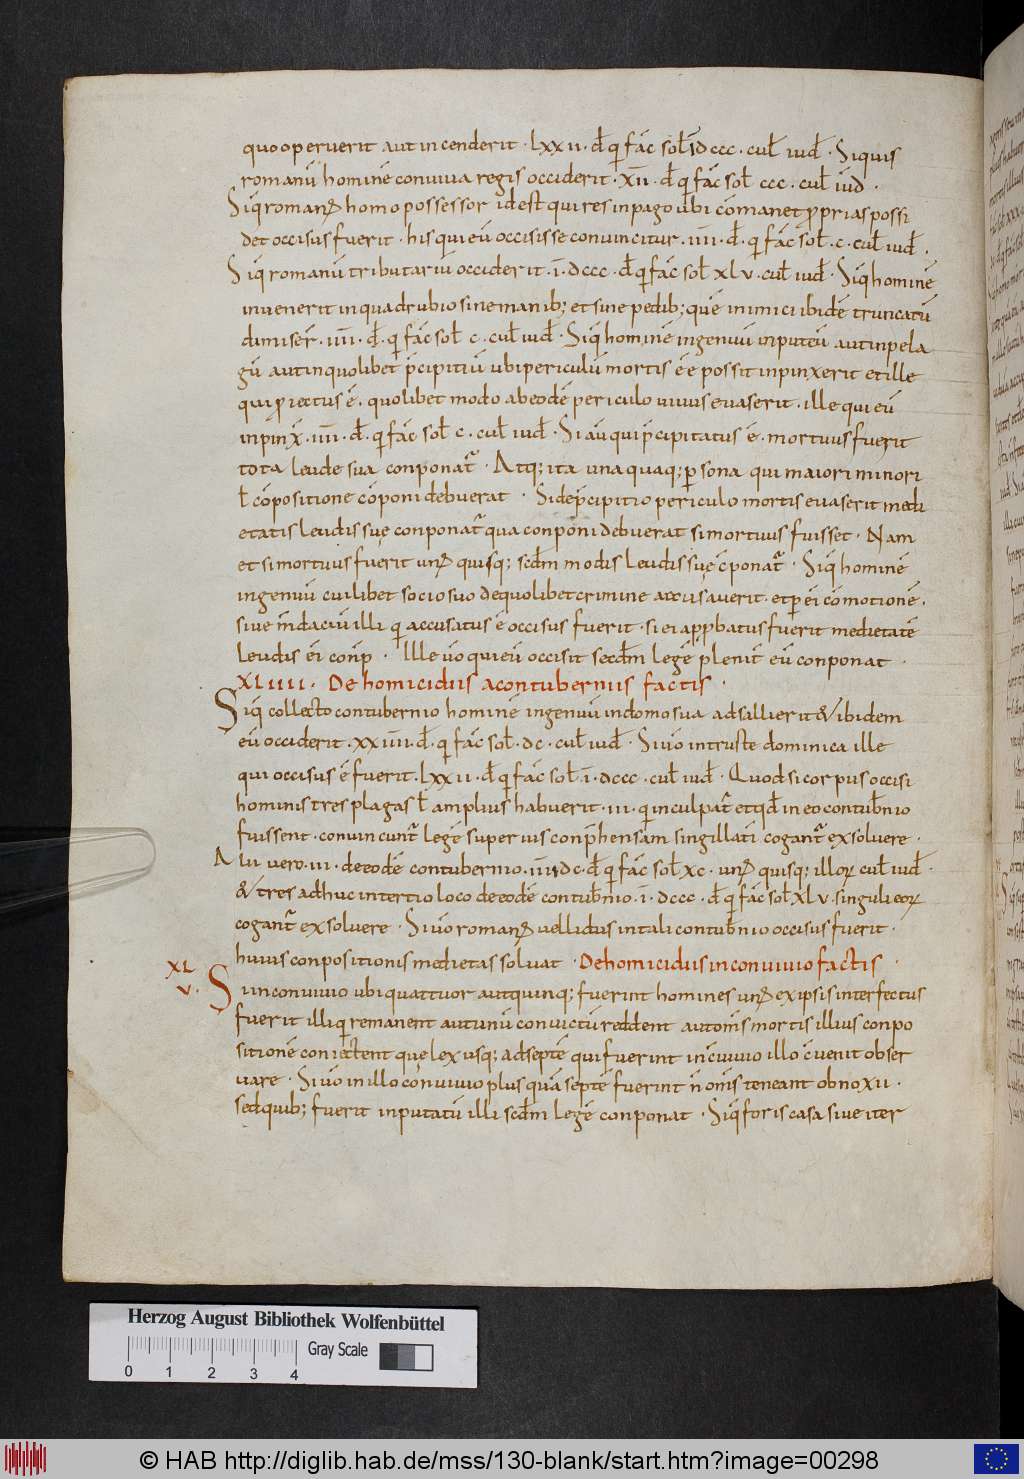 quo operuerit aut incenderit · lxxii · đ q̇ fac̄ sol̄ ī dccc · cul̄ iud̄ · Siquis
romanū hominē conuiua regis occiderit · xīī · đ q̇ fac̄ sol̄ ccc · cul̄ iūd ·
Siq̄ romanꝰ homo possessor idest qui res inpago ubi cōmanet ꝓprias possi
det occisus fuerit · his qui eū occisisse conuincitur · īīīī · đ · q̇ fac̄ sol̄ · c · cul̄ iud̄ ·
Siq̄ romanū tributariū occiderit · ī · dccc · đ q̇ fac̄ sol̄ xlv · cul̄ iud̄ · Siq̄ hominē
inuenerit in quadrubio sine manib; et sine pedib; quē inimici ibidē truncatū
dimiser̄ · īīīī · đ · q̇ fac̄ sol̄ c · cul̄ iud̄ · Siq̄ hominē ingenuū inputeū aut inpela
gū aut inquolibet p̄cipitiū ubi periculū mortis ēe possit inpinxerit et ille
qui ꝓiectus ē · quolibet modo abeodē periculo uiuus euaserit · ille qui eū
inpinx̄ · īīīī · đ · q̇ fac̄ sol̄ c · cul̄ iud̄ · Si aū qui p̄cipitatus ē · mortuus fuerit
tota leude sua conponat᷑ · Atq; ita unaquaq; ꝑsona qui maiori minori
ł cōpositione cōponi debuerat · Si de p̄cipitio periculo mortis euaserit medi
etatis leudis suę conponat᷑ qua conponi debuerat si mortuus fuisset · Nam
et si mortuus fuerit unꝰquisq; scd̄m modis leudis suę c̄ponat᷑ · Siq̄ hominē
ingenuū cuilibet socio suo de quolibet crimine accusauerit · et ꝑ ei cōmotionē ·
siue m̄daciū illi q̇ accusatus ē occisus fuerit · si ei apꝓbatus fuerit medietatē
leudis ēi conp̄ · Ille ūo qui eū occisit secd̄m legē plenit̄ eū conponat ·
XLIIII · De homicidiis a contuberniis factis ·
Siq̄ collecto contubernio hominē ingenuū in domo sua adsillierit & ibidem
eū occiderit · xxīīīī · đ · q̇ fac̄ sol̄ · dc · cul̄ iud̄ · Si ūo in truste dominica ille
qui occisus ē fuerit · lxxii · đ q̇ fac̄ sol̄ · ī · dccc · cul̄ iud̄ · Quod si corpus occisi
hominis tres plagas ł amplius habuerit · iii · q̇ inculpat᷑ et qd̄ in eo contub̄nio
fuissent · conuincunt᷑ legē superius conp̄hensam singillati cogant᷑ exsoluere ·
Alii uero · iii · de eodē contubernio · īīīdc · đ q̇ fac̄ sol̄ xc · unꝰquisq; illoꝝ cul̄ iud̄ ·
& tres adhuc in tertio loco de eodē contub̄nio · ī · dccc · đ q̇ fac̄ sol̄ xlv · singuli eoꝝ
cogant᷑ exsoluere · Si ūo romanꝰ uel lidus in tali contub̄nio occisus fuerit ·
huius conpositionis medietas soluat · De homicidiis in conuiuio factis ·
XL
V ·
Si in conuiuio ubi quattuor aut quinq; fuerint homines unꝰ ex ipsis interfectus
fuerit illi q̇ remanent aut unū conuictū reddent aut om̄s mortis illius conpo
sitionē coniectent que lex usq; ad septē qui fuerint in c̄uiuio illo c̄uenit obser
uare · Si ūo in illo conuiuio plus quā septē fuerint n̄ om̄s teneant obnoxii ·
sed quib; fuerit inputatū illi scd̄m legē conponat · Siq̄ foris casa siue iter
Herzog August Bibliothek Wolfenbüttel
Gray Scale
0 1 2 3 4
© HAB http://diglib.hab.de/mss/130-blank/start.htm?image=00298